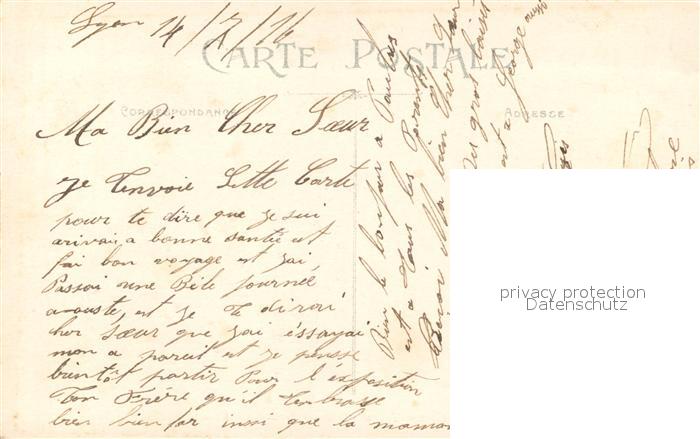 Lyon 14/7/16
CARTE POSTALE
CORRESPONDANCE
ADRESSE
Ma Bien Cher Sœur
Je t'envoie Sette Carte
pour te dire que je sui
arivai a bonne santée et
fai bon voyage et jai
Passai une Bèle journée
et je te dirai
cher sœur que jai éssayai
mon a pareil et je pensse
bientôt partir Pour l'éxposition
Ton Frére qu'il t'enbrasse
bien bien for insi que la maman
Bien le bonjour a
est a tous les Parents
Ma bien Cher
gros baisé
George
privacy protection
Datenschutz